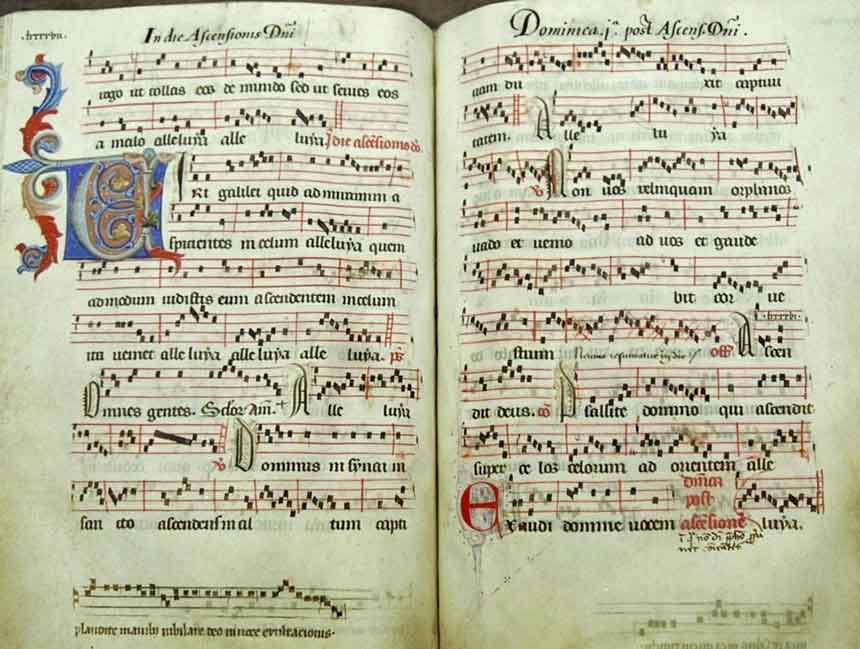 In die Ascensionis Dñi
rogo ut tollas eos de mundo sed ut serues eos
a malo alleluya alle luya. ĩ die ascẽsionis
Uiri galilei quid admiramini a
spicientes in celum alleluya quem
admodum uidistis eum ascendentem in celum
ita ueniet alleluya alleluya alle luya. p̃s
Omnes gentes. Alle luya
Dominus in synai in
san cto ascendens in al tum capti
plaudite manibus iubilate deo in uoce exultationis.
Dominica. j.ª post Ascens. Dñi.
uam du xit captiui
tatem. Alle lu ya
Non uos relinquam orphanos
uado et uenio ad uos et gaude
bit cor ue
strum off. Ascen
dit deus. Psallite domino qui ascendit
super ce los celorum ad orientem alle
dñica
post
Exaudi domine uocem ascẽsionẽ luya.